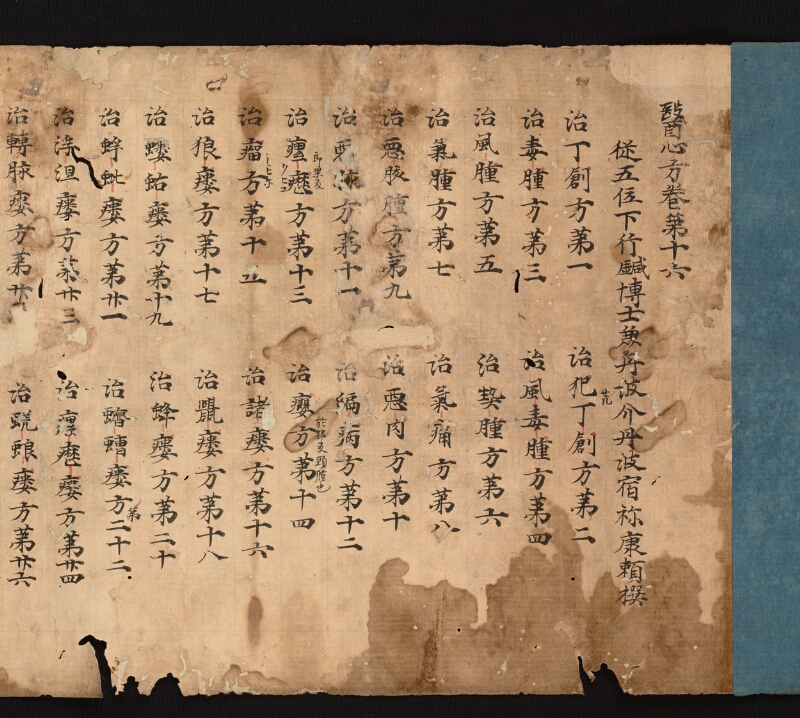 醫心方卷第十六
従五位下行鍼博士兼丹波介丹波宿祢康頼撰
治丁創方第一
治犯丁創方第二
治毒腫方第三
治風毒腫方第四
治風腫方第五
治𤍠腫方第六
治氣腫方第七
治氣痛方第八
治惡脉腫方第九
治惡肉方第十
治惡核方第十一
治編病方第十二
治瘰癧方第十三
治癭方第十四
治瘤方第十五
治諸瘻方第十六
治狼瘻方第十七
治鼠瘻方第十八
治螻蛄瘻方第十九
治蜂瘻方第二十
治蚍蜉瘻方第廿一
治蠐螬瘻方第二十二
治浮沮瘻方第廿三
治瘰癧瘻方第廿四
治轉脉瘻方第廿五
治蜣蜋瘻方第廿六